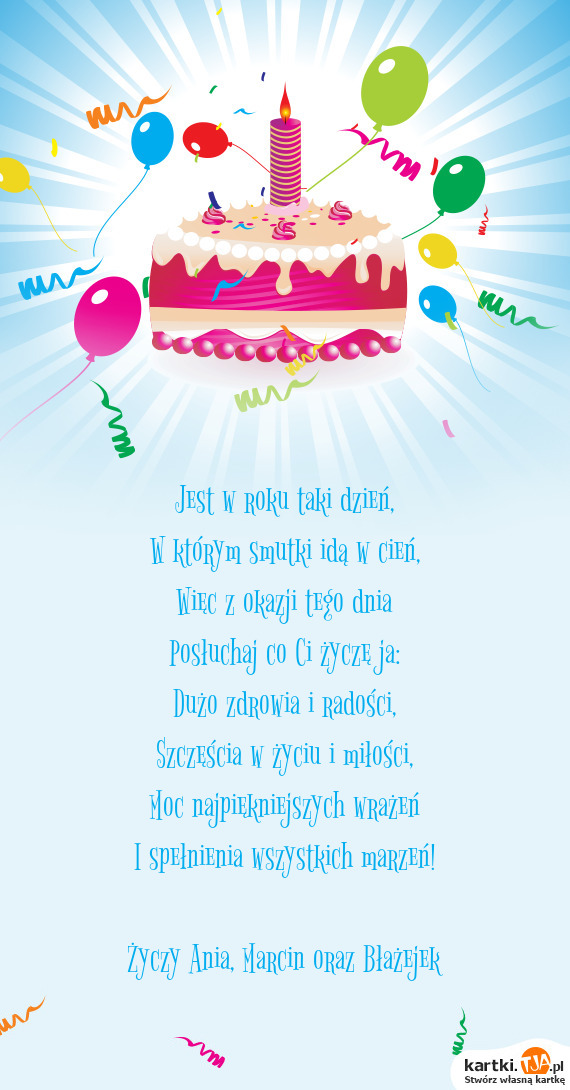 Jest w roku taki dzień,
W którym smutki idą w cień,
Więc z okazji tego dnia
Posłuchaj co Ci życzę ja:
Dużo zdrowia i radości,
Szczęścia w życiu i miłości,
Moc najpiękniejszych wrażeń
I spełnienia wszystkich marzeń!
Życzy Ania, Marcin oraz Błażejek
kartki.TJA.pl
Stwórz własną kartkę